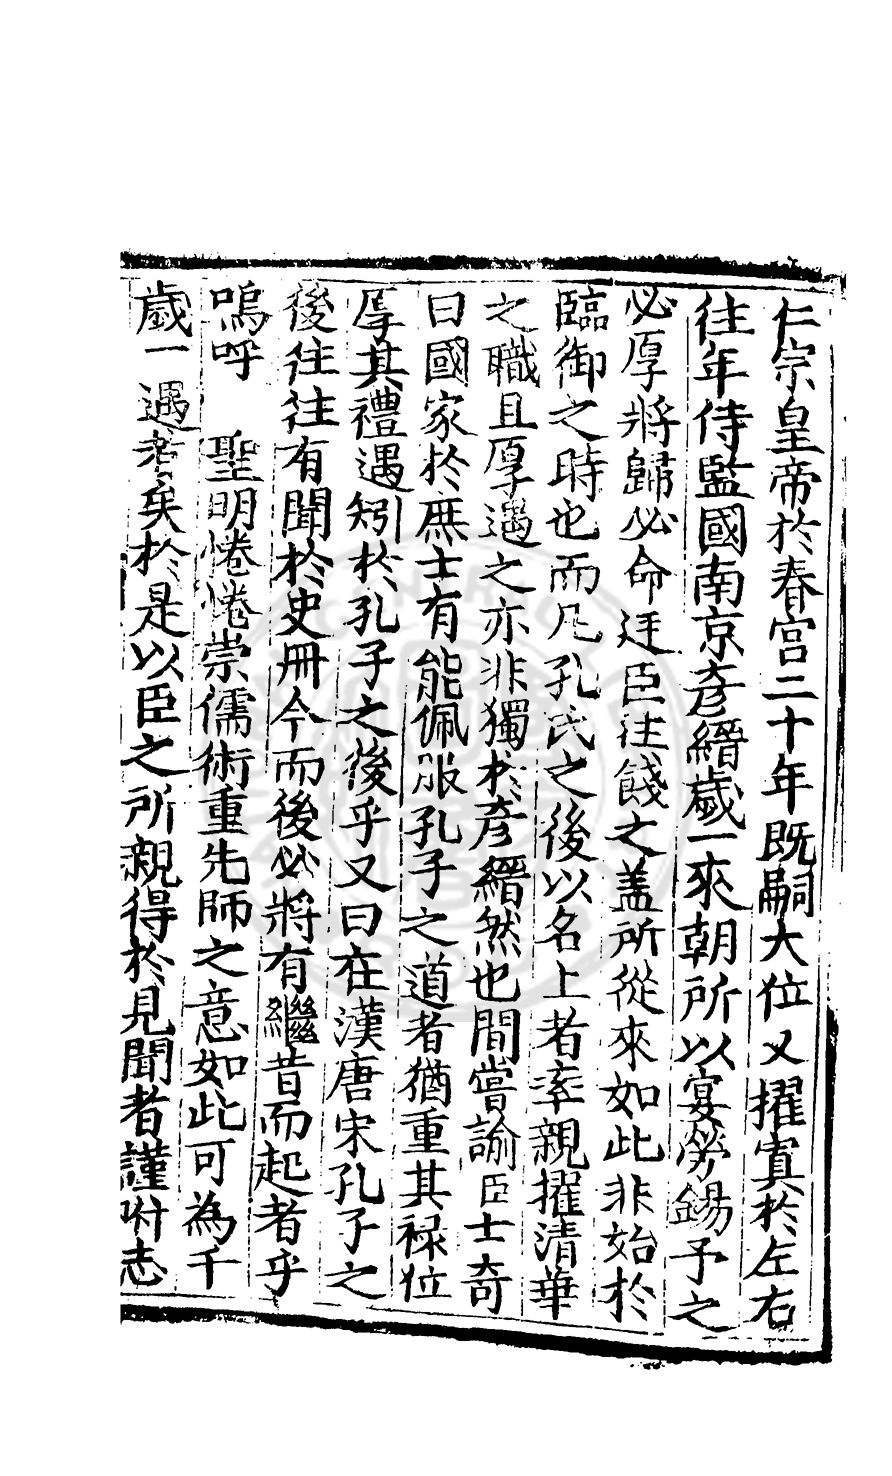 仁宗皇帝於春宮二十年既嗣大位又擢寘於左右
往年侍監國南京彥縉歲一來朝所以宴勞錫予之
必厚將歸必命廷臣往餞之盖所從來如此非始於
臨御之時也而凡孔氏之後以名上者率親擢清華
之職且厚遇之亦非獨於彥縉然也間嘗諭臣士奇
曰國家於庶士有能佩服孔子之道者猶重其禄位
厚其禮遇矧於孔子之後乎又曰在漢唐宋孔子之
後往往有聞於史冊今而後必將有繼昔而起者乎
嗚呼 聖明惓惓崇儒術重先師之意如此可為千
歲一遇者矣於是以臣之所親得於見聞者謹附志